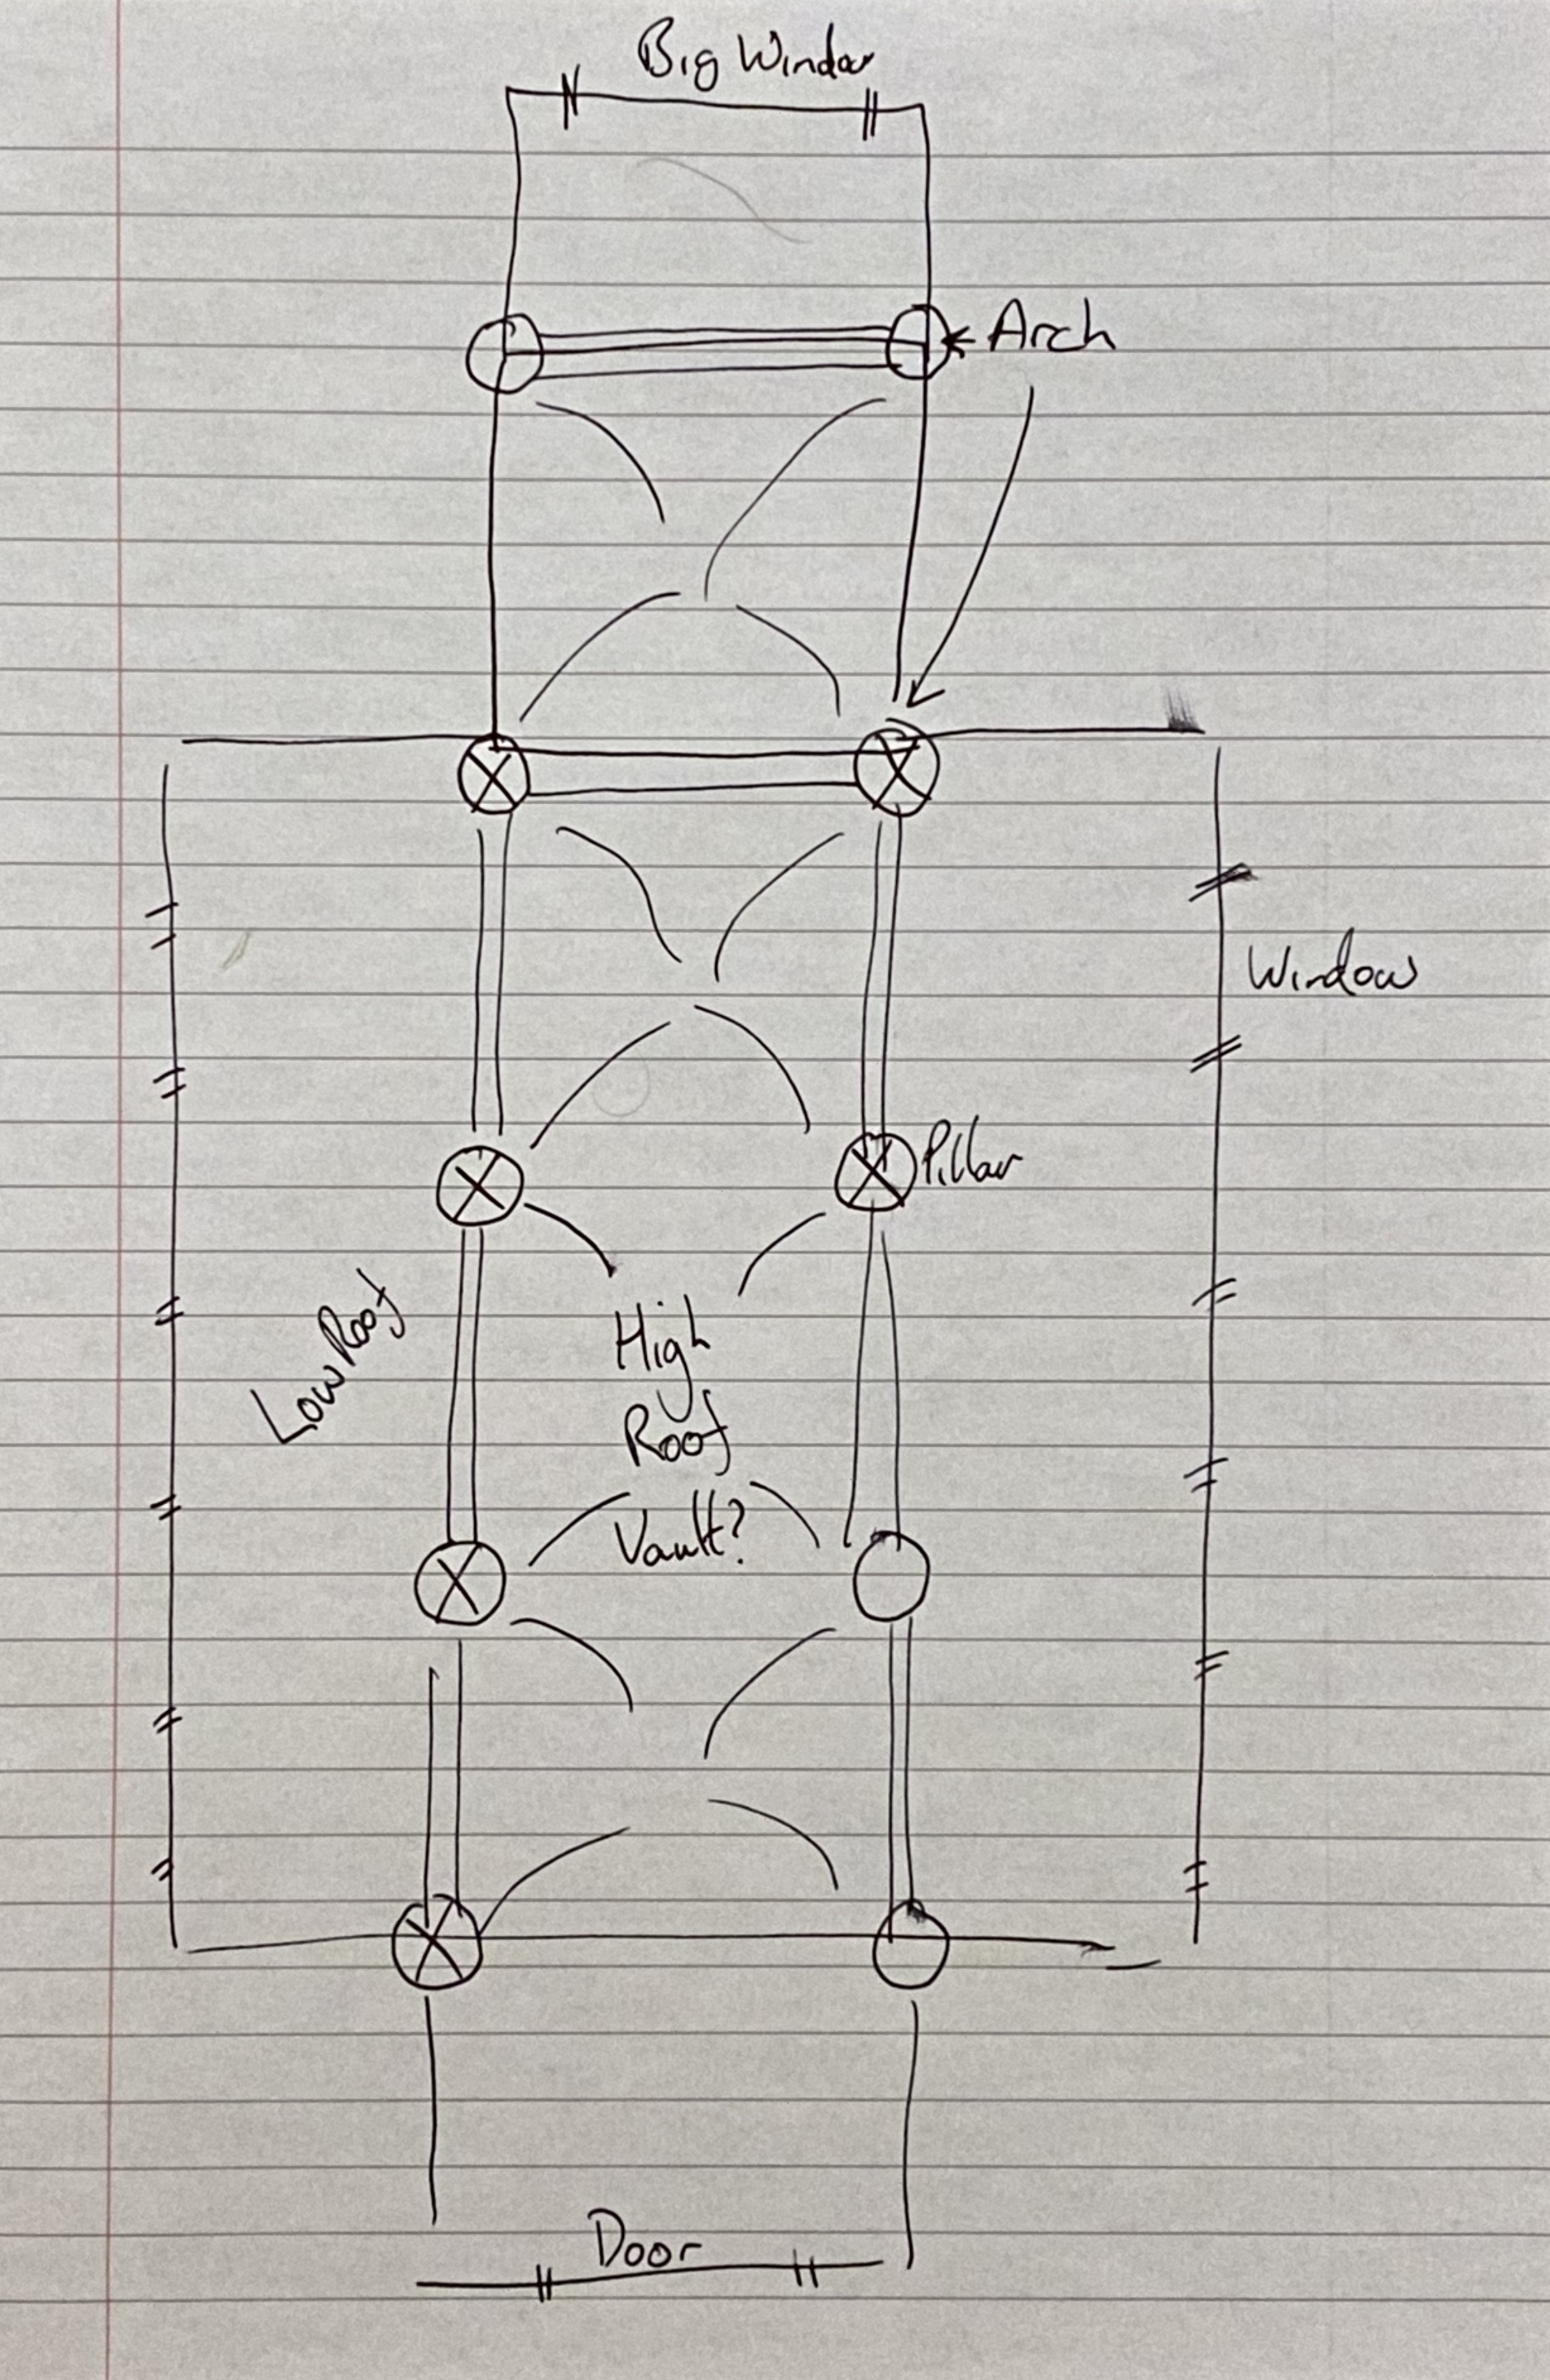 Big Window
Arch
Window
Pillar
Low Roof
High
Roof
Vault?
Door